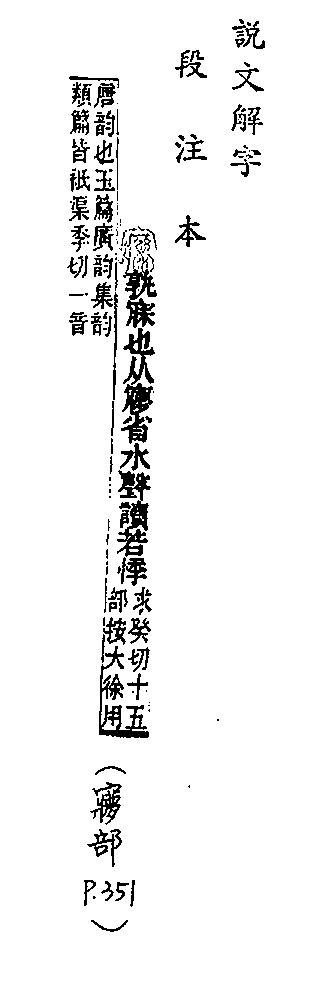 説文解字
段注本
孰寐也从㝱省水聲讀若悸
求癸切十五
部按大徐用
唐韵也玉篇廣韵集韵
類篇皆祇渠季切一音
（㝱部
P.351）